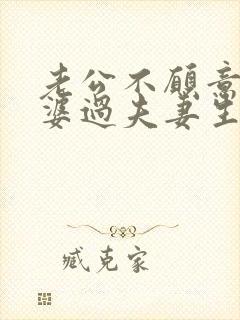 老公不愿意
婆過夫妻生
臧克家